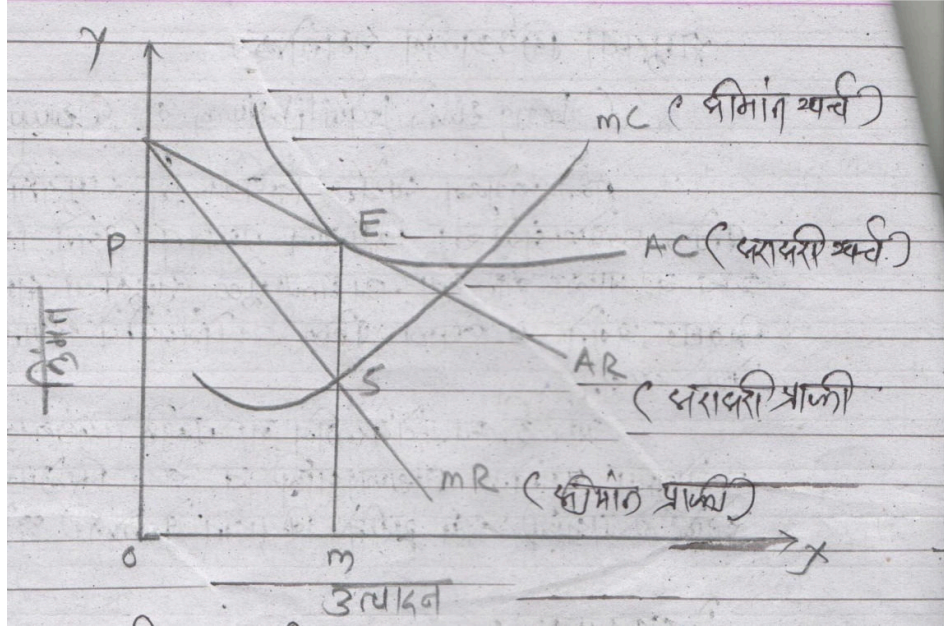 y
MC ( सीमांत खर्च )
E
P
AC ( सरासरी खर्च )
किंमत
AR
( सरासरी प्राप्ती
S
MR ( सीमांत प्राप्ती )
O
M
X
उत्पादन